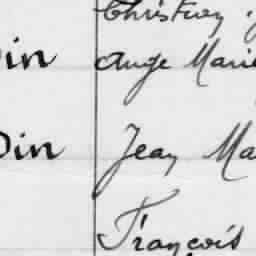 Christroy
in Ange Marie
Din Jean Ma
François